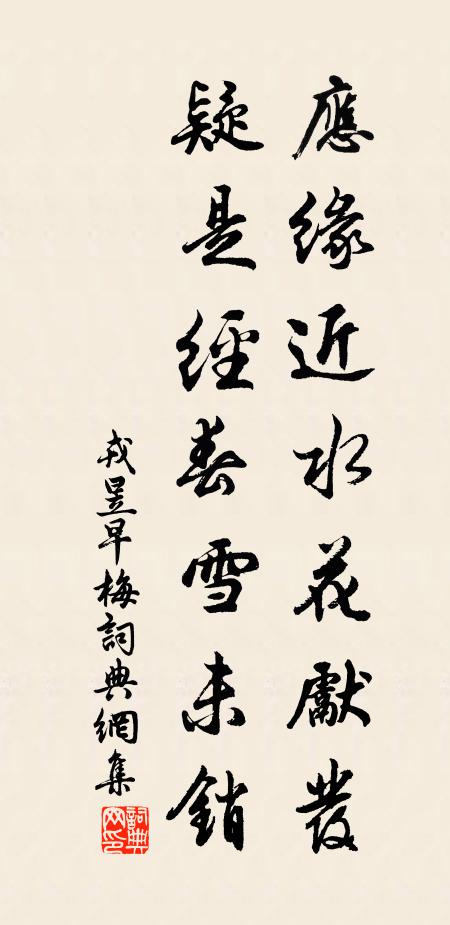 應緣近水花獻發
疑是經春雪未銷
戎昱早梅詞典網集
詞典網印